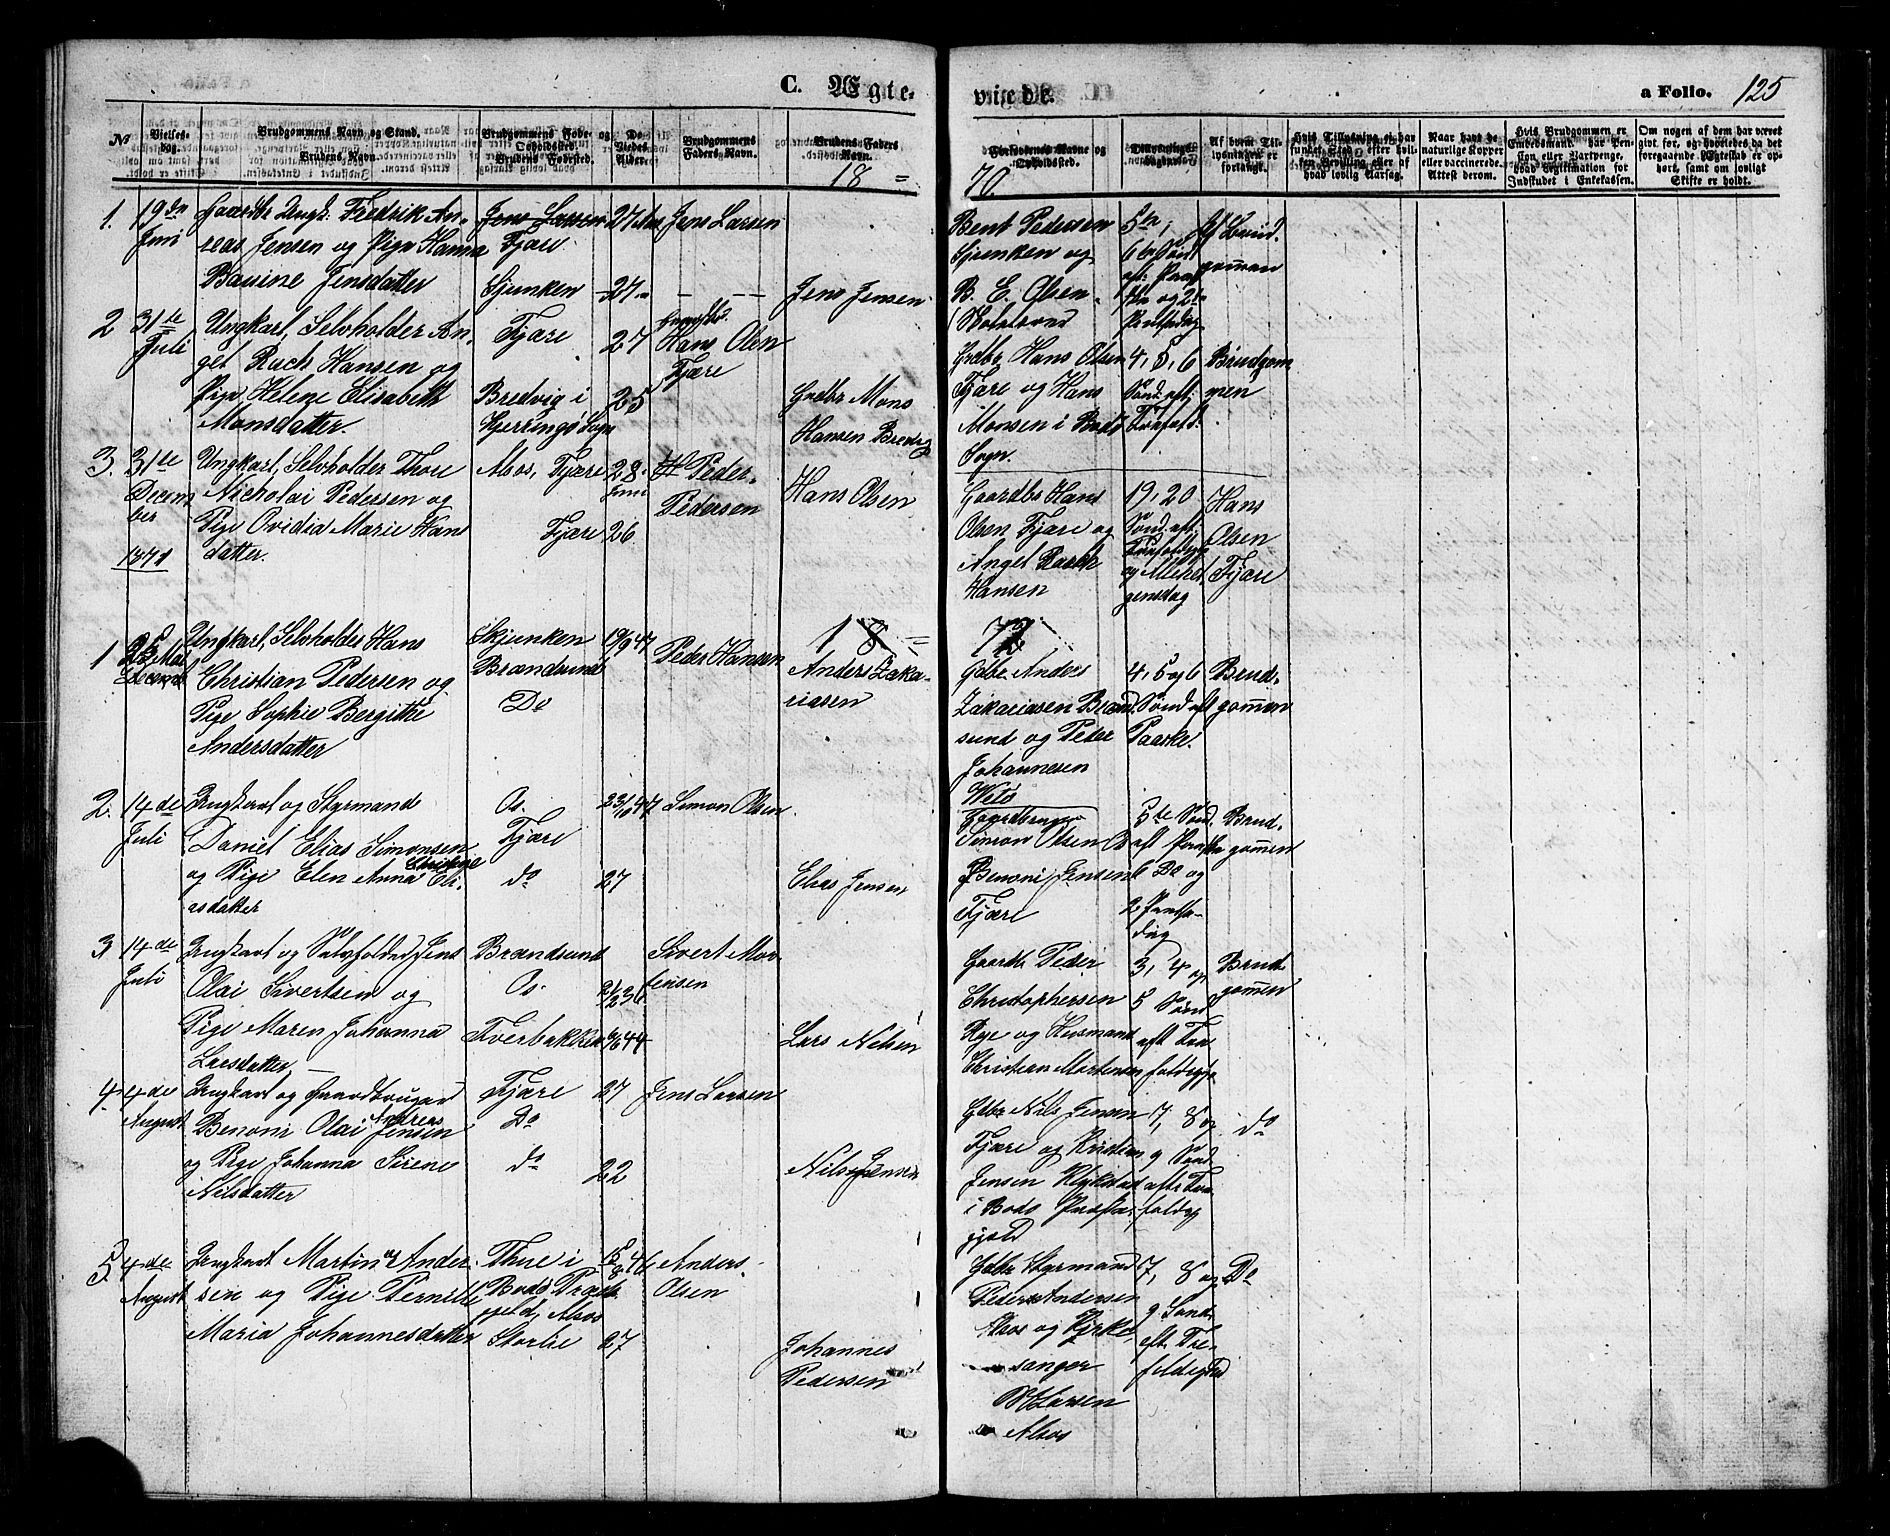 C. Ægte-
viede.
a Folio. 125
№
Vielses-
dag.
Brudgommens Navn og Stand.
Brudens Navn.
Brudgommens Føde- og
Opholdssted.
Brudens Fødested.
Do
Alder.
Brudgommens
Faders Navn.
Brudens Faders
Navn.
Forlovernes Navne og
Opholdssted.
Tillysnings-
Af hvem Til-
lysningen er
forlangt.
Hvis Tillysning ei har
fundet Sted, efter hvil-
ken Bevilling eller af
hvad lovlig Aarsag.
Naar havt de
naturlige Kopper
eller vaccinerede.
Attest derom.
Hvis Brudgommen er
Embedsmand, har Pen-
sion eller Vartpenge,
hvad Legitimation for
Indskudet i Enkekassen.
Om nogen af dem har været
gift før, og hvorledes da det
foregaaende Ægteskab er op-
hørt, samt om lovligt
Skifte er holdt.
18 =
70
1. 19de Juni
Fredrik An-
reas Jensen og Pige Hanna
Bauine Jensdatter
Fjære
Sjunken
27
27
Jens Larsen
Jens Jensen
Bent Pedersen
Sjunken og
B. E. Olsen
Af Brud-
gommen
2 31te Juli
Ungkarl, Selvholder An-
get Rach Hansen og
Pige Helene Elisabeth
Monsdatter.
Fjære
Bredvig i
Kjerringø Sogn
27
25
Hans Olsen
Fjære
Grdbr Mons
Hansen Bredvig
Grdbr Hans Olsen
Fjære og Hans
Monsen i Bodø
Sogn.
4, 5, 6
Sønd. aft.
Trefold.
Brudgom
men
3. 31te Decem
ber
Ungkarl, Selvholder Thore
Nicholai Pedersen og
Pige Ovidia Marie Hans
datter.
Alsos, Fjære
Fjære
28
26
Peder
Pedersen
Hans Olsen
Gaardbr Hans
Olsen Fjære og
Anget Rach
Hansen
19, 20
Sønd. aft.
og Mikel
gensdag
Hans
Olsen
Fjære
1871
18 =
71
1
Ungkarl, Selvholder Hans
Christian Pedersen og
Pige Sophie Bergithe
Andersdatter
Skjunken
Brændsund
Do
19/9 47
Peder Hansen
Anders Zaka-
riasen
Gdbr Anders
Zakariasen Brænd
sund og Peder
Johannesen
4, 5 og 6
Sønd aft
Paaske.
Brud-
gommen
2. 14de Juli
Ungkarl og Styrmand
Daniel Elias Simonsen
og Pige Elen Anna Christine Eli-
asdatter
Os.
Fjære
do
23/10 47
27
Simon Olsen.
Elias Jensen
Gaardbruger
Simon Olsen Os
Benoni Jensen
Fjære
5te Sønd.
aft Paaske
6 Do og
2 Pintse-
dag
Brud-
gommen
3 14de Juli
Ungkarl og Selvholder Jens
Olai Sivertsen og
Pige Maren Johanna
Larsdatter
Brændsund
Os.
Tverbakken
6/6 44
Sivert Mor
tensen
Lars Nilsen
Gaardb Peder
Christophersen
Rye og Husmand
Christian Mortensen
3, 4 og
5 Sønd
aft Tre
foldigh
Brud
gomen
4. 4de August
Ungkarl og Gaardbruger
Benoni Olai Andreas Jensen
og Pige Johanna Sirene
Nilsdatter
Fjære
Do
do
27
22
Jens Larsen
Nils Jensen
Gdbr Nils Jensen
Fjære og Kristian
Jensen
i Bodø Præste-
gjeld
7, 8 og
9 Sønd
aft Tre
foldigh
do
5. 4de August
Ungkarl Martin Ander
sen og Pige Pernille
Maria Johannesdatter
Thue i
Bodø Præste
gjeld, Alsos
Storlie
27
Anders
Olsen
Johannes
Pedersen
Gdbr Styrmand
Peder Andersen
Alsos og Kirke
sanger
Larsen
Alsos
7, 8 og
9 Sønd
aft. Tre-
foldighed
Do